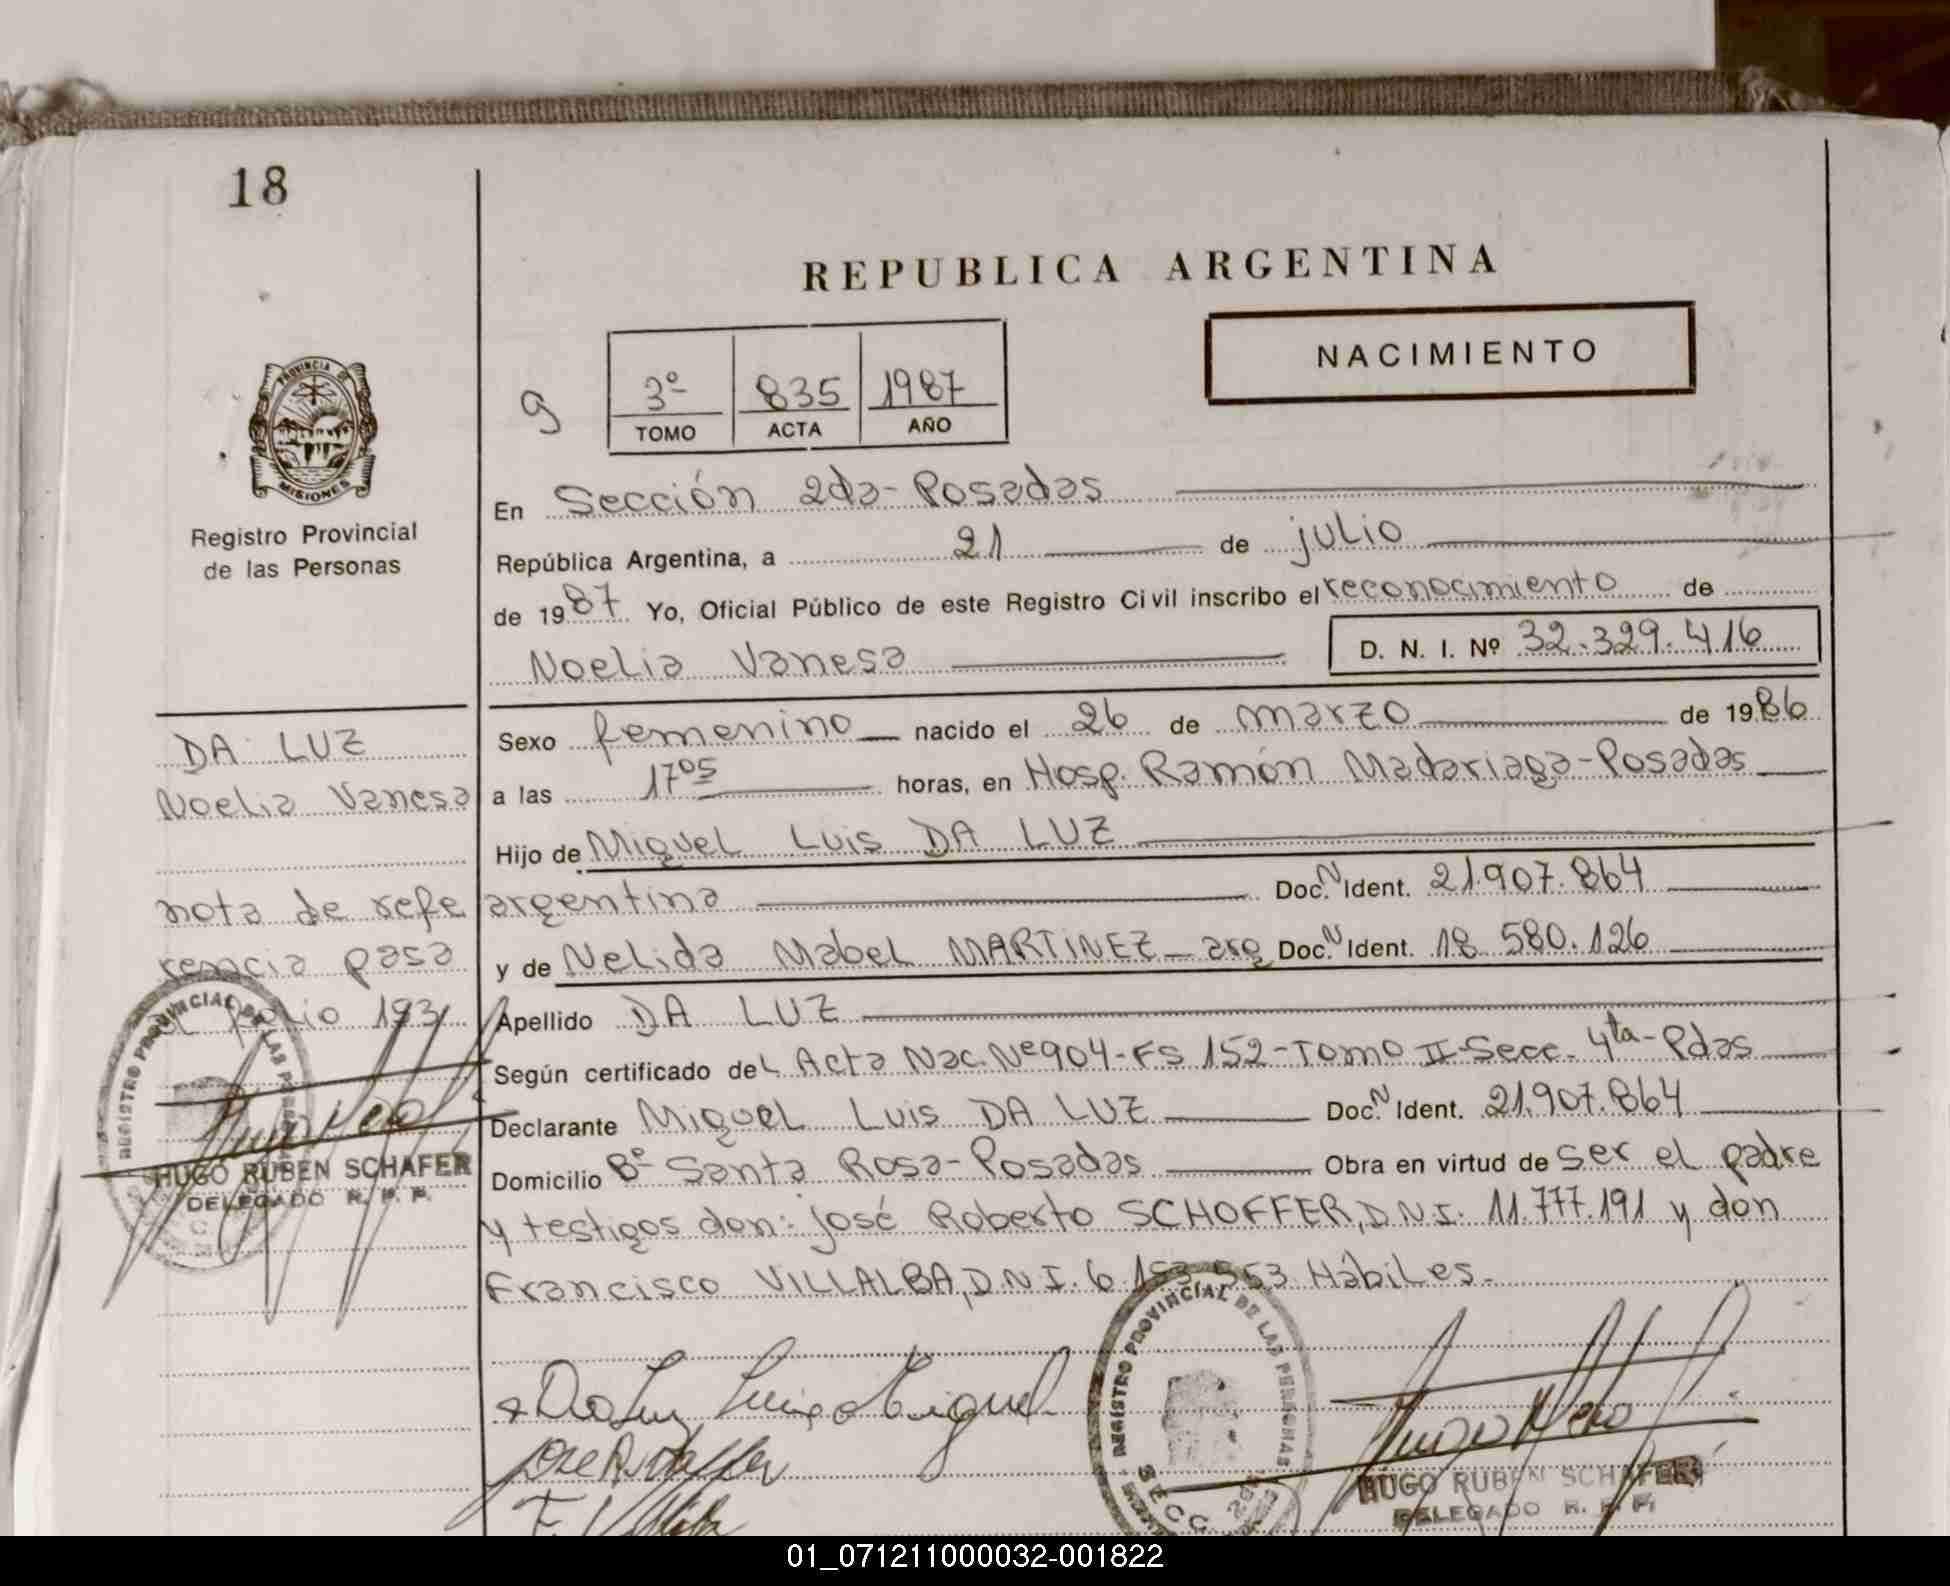 18
REPUBLICA ARGENTINA
NACIMIENTO
9
3º 835 1987
TOMO ACTA AÑO
PROVINCIA DE
MISIONES
Registro Provincial
de las Personas
En Sección 2da - Posadas
República Argentina, a 21 de julio
de 1987 Yo, Oficial Público de este Registro Civil inscribo el reconocimiento de
Noelia Vanesa D. N. I. Nº 32.329.416
Sexo femenino nacido el 26 de marzo de 1986
a las 17 05 horas, en Hosp. Ramón Madariaga - Posadas
Hijo de Miguel Luis DA LUZ
argentina Doc. N Ident. 21.907.864
y de Nelida Mabel MARTINEZ - arg Doc. N Ident. 18 580.126
Apellido DA LUZ
Según certificado del Acta Nac. Nº 904 - Fs 152 - Tomo II - Secc. 4ta - Pdas
Declarante Miguel Luis DA LUZ Doc. N Ident. 21.907.864
Domicilio Bº Santa Rosa - Posadas Obra en virtud de ser el padre
y testigos don: José Roberto SCHOFFER, D.N.I. 11.777.191 y don
Francisco VILLALBA, D.N.I. 6.153.553 Hábiles.
DA LUZ
Noelia Vanesa
nota de refe
rencia pasa
al folio 193
REGISTRO PROVINCIAL DE LAS
HUGO RUBEN SCHAFER
DELEGADO R. P. P.
Da Luz Luis Miguel
REGISTRO PROVINCIAL DE LAS PERSONAS
SECC
HUGO RUBEN SCHAFER
DELEGADO R. P. P.
01_071211000032-001822